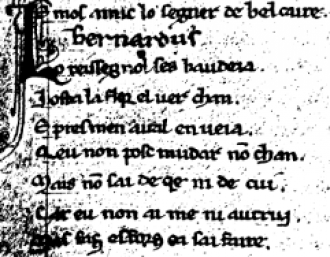 mos amic lo segner de belcaire
Bernardus
Lo rossegnol ses baudeia.
Iosta la flor el uer chan.
E pres men aital en ueia.
Qeu non posc mudar nō chan.
Mais nō sai de qe ni de cui.
Car eu non am me ni autrui.
faire.